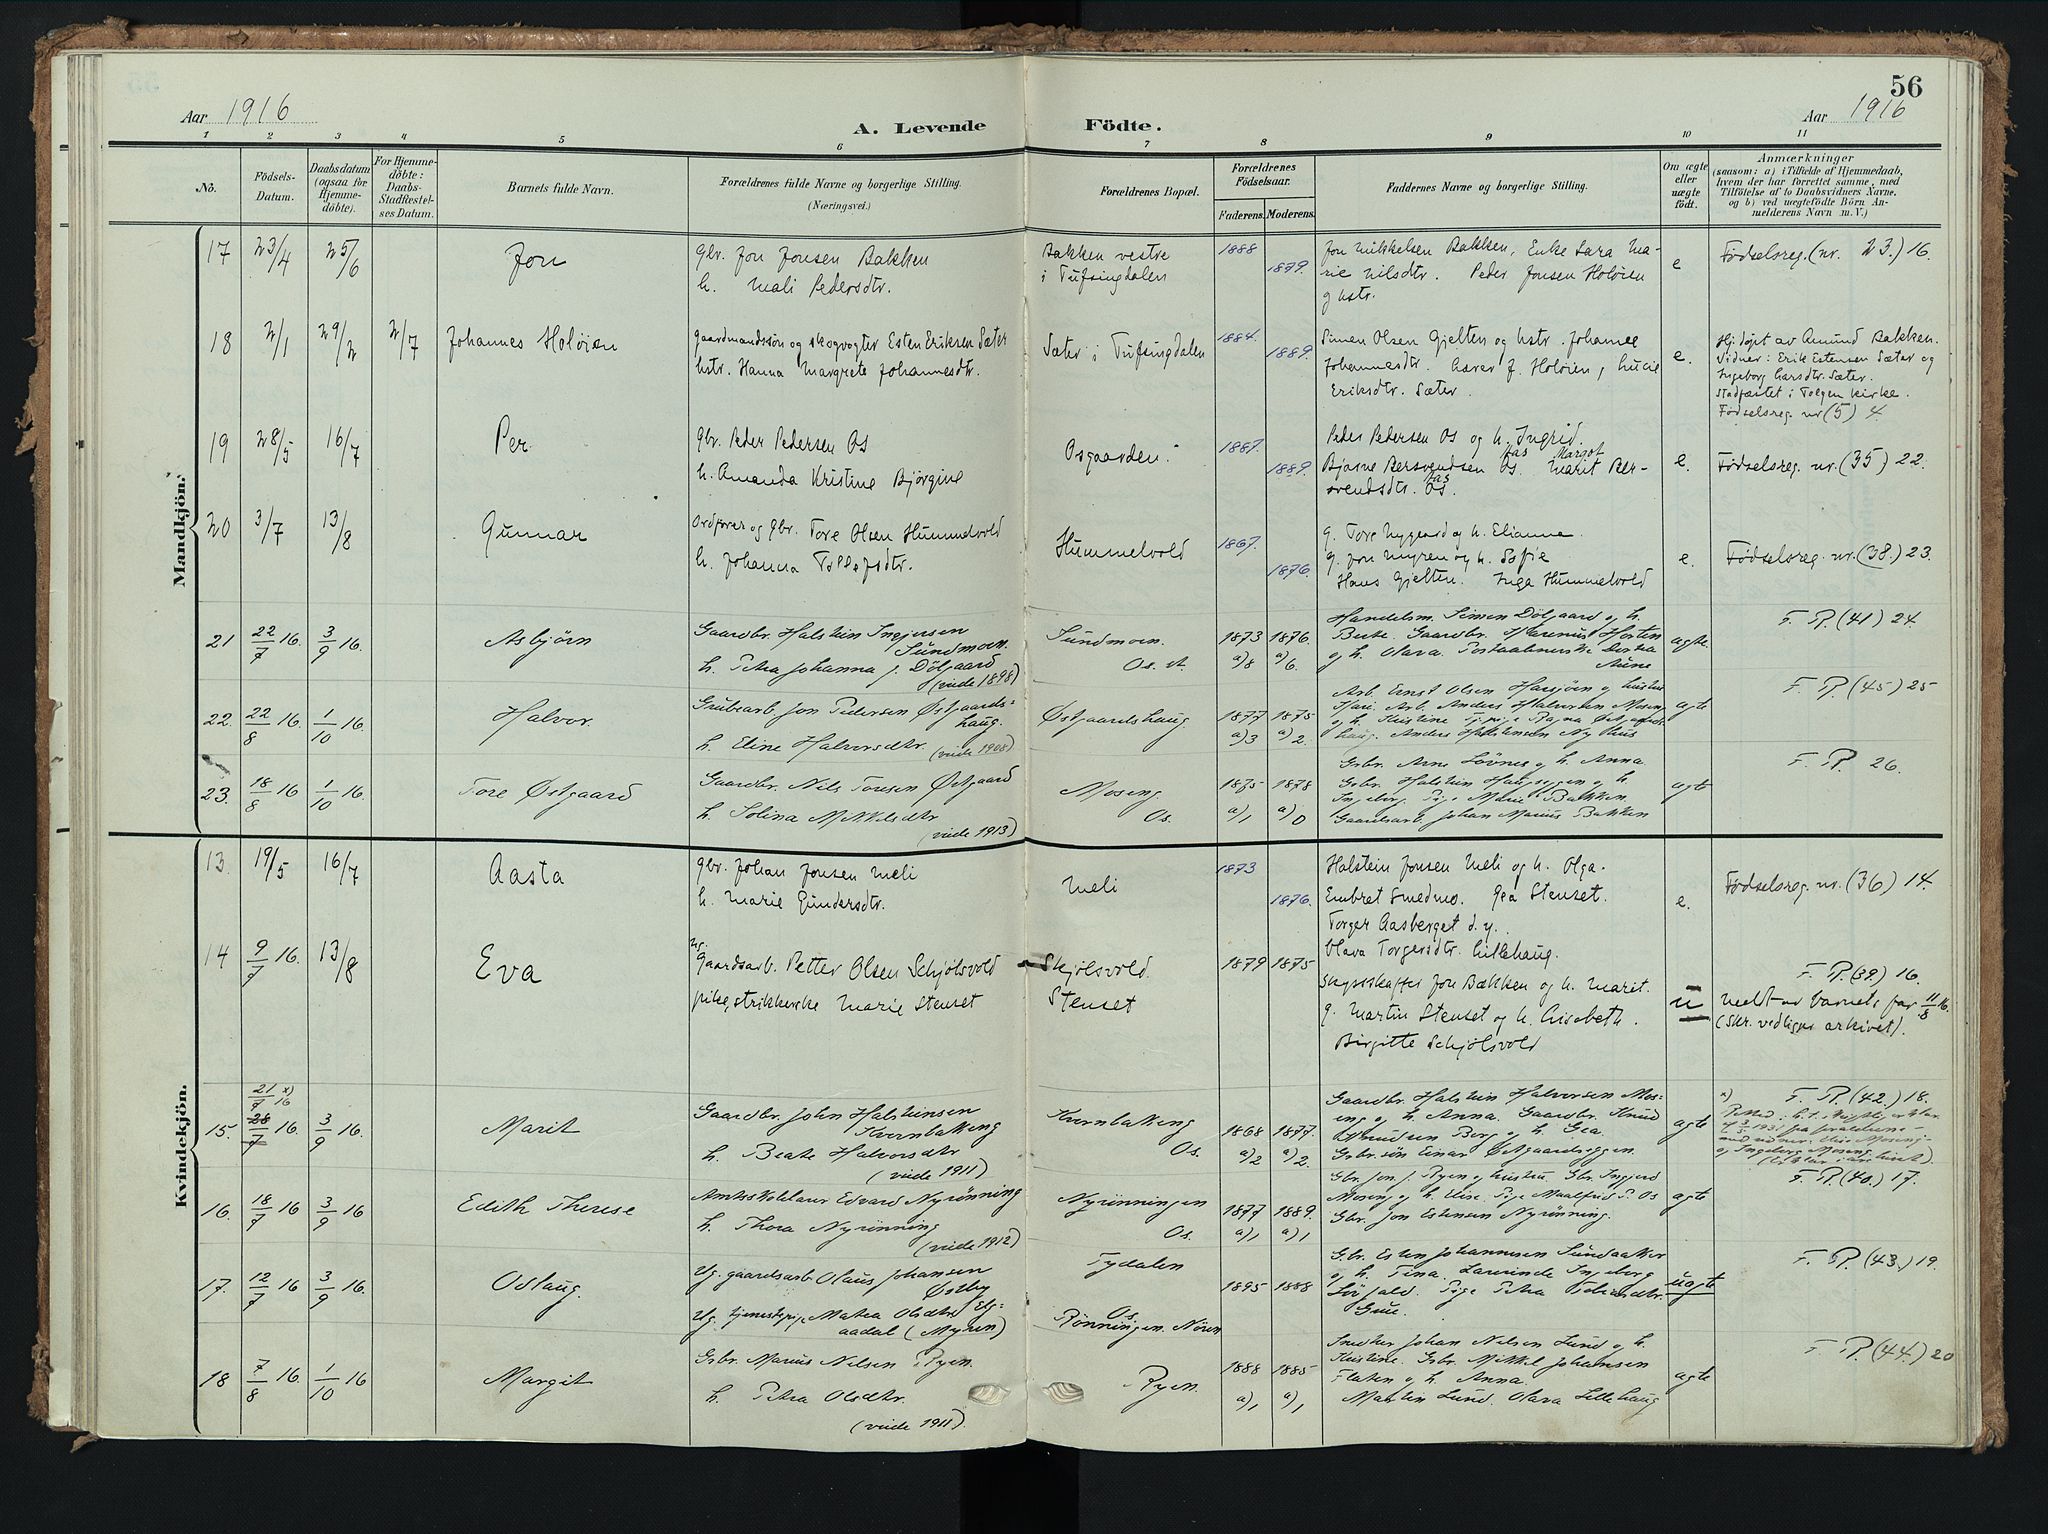 56
Aar 1916
A. Levende
Födte.
Aar 1916
1 2 3 4 5 6 7 8 9 10 11
No.
Födsels-
Datum.
Daabsdatum
(ogsaa for
Hjemme-
döbte).
For Hjemme-
döbte:
Daabs-
Stadfæstel-
ses Datum.
Barnets fulde Navn.
Forældrenes fulde Navne og borgerlige Stilling.
(Næringsvei.)
Forældrenes Bopæl.
Forældrenes
Födselsaar.
Faderens. Moderens.
Faddernes Navne og borgerlige Stilling.
Om ægte
eller
uægte
födt.
Anmærkninger
(saasom: a) i Tilfælde af Hjemmedaab,
hvem der har forrettet samme, med
Tilföielse af to Daabsvidners Navne.
og b) ved uægtefödte Börn An-
melderens Navn m.V.)
Mandkjön.
17 23/4 25/6 Jon
Gbr. Jon Jonsen Bakken
h. Mali Pedersdtr.
Bakken vestre
i Tufsingdalen
1888
1879.
Jon Mikkelsen Bakken, Enke Sara Ma-
rie Nilsdtr. Peder Jonsen Holøien
og hstr.
e
Fødselsreg. (nr. 23.) 16.
18 2/1 29/2 2/7 Johannes Holøien
Gaardmandssøn og skogvogter Esten Eriksen Sæter
hstr. Hanna Margrete Johannesdtr.
Sæter i Tufsingdalen
1884.
1889.
Simen Olsen Gjelten og hstr. Johanne
Johannesdtr. J. Holøien, Lucie
Eriksdtr. Sæter.
e.
Hj.døpt av Amund Bakken.
Vidner: Erik Estensen Sæter og
Ingeborg Larsdtr. Sæter.
Stadfæstet i Tolgen kirke.
Fødselsreg. nr (5) 4
19 28/5 16/7 Per
Gbr. Peder Pedersen Os
h. Amanda Kristine Bjørgine
Osgaarden.
1887.
1889.
Peder Pedersen Os og h. Ingrid.
Bjarne Bersvendsen Os. Marit Margot Ber-
svendsdtr. Os.
e.
Fødselsreg. nr. (35) 22.
20 3/7 13/8 Gunnar
Ordfører og Gbr. Tore Olsen Hummelvold
h. Johanna Tollefsdtr.
Hummelvold
1867.
1876.
G. Tore Nygaard og h. Elianna.
G. Jon Myren og h. Sofie
Hans Gjelten. Inga Hummelvold
e.
Fødselsreg. nr. (38.) 23.
21 22/7 16. 3/9 16. Asbjørn
Gaardbr. Halstein Ingersen
Sundmoen.
h. Petra Johanna J. Dølgaard
(viede 1898)
Sundmoen.
Os. st.
1873 1876.
a/8 a/6.
Handelsm. Simen Dølgaard og h.
Berte. Gaardbr. Marenus Horten
og h. Olava. Postaabnerske Dortea
Aune
ægte.
F. P. (41) 24.
22. 22/8 16. 1/10 16. Halvor.
Grubearb. Jon Pedersen Østgaards-
haug.
h. Eline Halvorsdtr. (viede 1908)
Østgaardshaug.
1877 1875
a/3 a/2.
Arb. Ernst Olsen Harsjøen og hustru
Kari. Arb. Anders Halvorsen Moseng
og h. Kristine. Pige Ragna Østgaards-
haug. Anders Nyhus
ægte
F. P. (45) 25
23. 18/8 16 1/10 16. Tore Østgaard
Gaardbr. Nils Toresen Østgaard
h. Solina Mikkelsdtr
(viede 1913)
Moseng.
Os.
1875 1878
a/1 a/0
Gsbr. Arne Løvnes og h. Anna
Gsbr. Halstein Haugseggen og h
Ingeborg. Pige Marie Bakken
Gaardsarb. Johan Marius Bakken
ægte
F. P. 26.
Kvindekjön.
13. 19/5 16/7 Aasta
Gbr. Johan Jonsen Meli
h. Marie Gundersdtr.
Meli
1873
1876.
Halstein Jonsen Meli og h. Olga.
Embret Smedmo. Gea Stenset.
Torger Aasberget d.y.
Olava Torgersdtr. Lillehaug.
e.
Fødselsreg. nr. (36) 14.
14 9/7 16. 13/8 Eva
Ug.
Gaardsarb. Petter Olsen Schjølsvold
pike, strikkerske Marie Stenset
Skjølsvold.
Stenset
1879 1875
Skysskaffer Jon Bækken og h. Marit.
G. Martin Stenset og h. Lisebeth.
Birgitte Schjølsvold
u
F. P. (39) 16.
Meldt av barnets far 11/8 16.
(Skr. vedligger arkivet).
15. 21/7 16 x) 28/7 16. 3/9 16. Marit
Gaardbr. John Halsteinsen
Kvernbakkeng
h. Beate Halvorsdtr
(viede 1911)
Kvernbakkeng
Os.
1868 1877.
a/2 a/2.
Gaardbr. Halstein Halvorsen Mos-
eng og h. Anna. Gaardbr. Knud
Amundsen Borg og h. Gea.
Gsbr. søn Einar Østgaardseggen.
ægte
F. P. (42.) 18.
x)
16. 18/7 16 3/9 16 Edith Therese
Amtsskolelærer Edvard Nyrønning
h. Thora Nyrønning
(viede 1912)
Nyrønningen
Os.
1877 1889.
a/1 a/1
Gbr. Jon J. Ryen og hustru. Gbr. Ingjerd
Moseng og h. Eline. Pige Maalfrid P. Os
Gbr. Jon Estensen Nyrønning.
ægte
F. P. (40.) 17.
17. 12/7 16 3/9 16. Oslaug.
Ug. gaardsarb. Olaus Johansen
Østby
Ug. tjenestepige Matea Olsdtr Elg-
aadal (Myren)
Tydalen
Os.
Rønningen. Nøren
1895 1888
G.br. Esten Johannesen Sundbakker
og h. Tina. Laurinde Ingeborg
Pige Petra
uægte
F. P. (43.) 19.
18 7/8 16. 1/10 16 Margit
Gsbr. Marius Nilsen Ryen.
h. Petra Olsdtr.
(viede 1911).
Ryen.
1888 1885
a/1 a/1
Snedker Johan Nilsen Lund og h.
Kristine. Gsbr. Mikkel Johansen
Flaten og h. Anna.
Martin Lund. Olava Lillehaug
ægte
F. P. (44.) 20